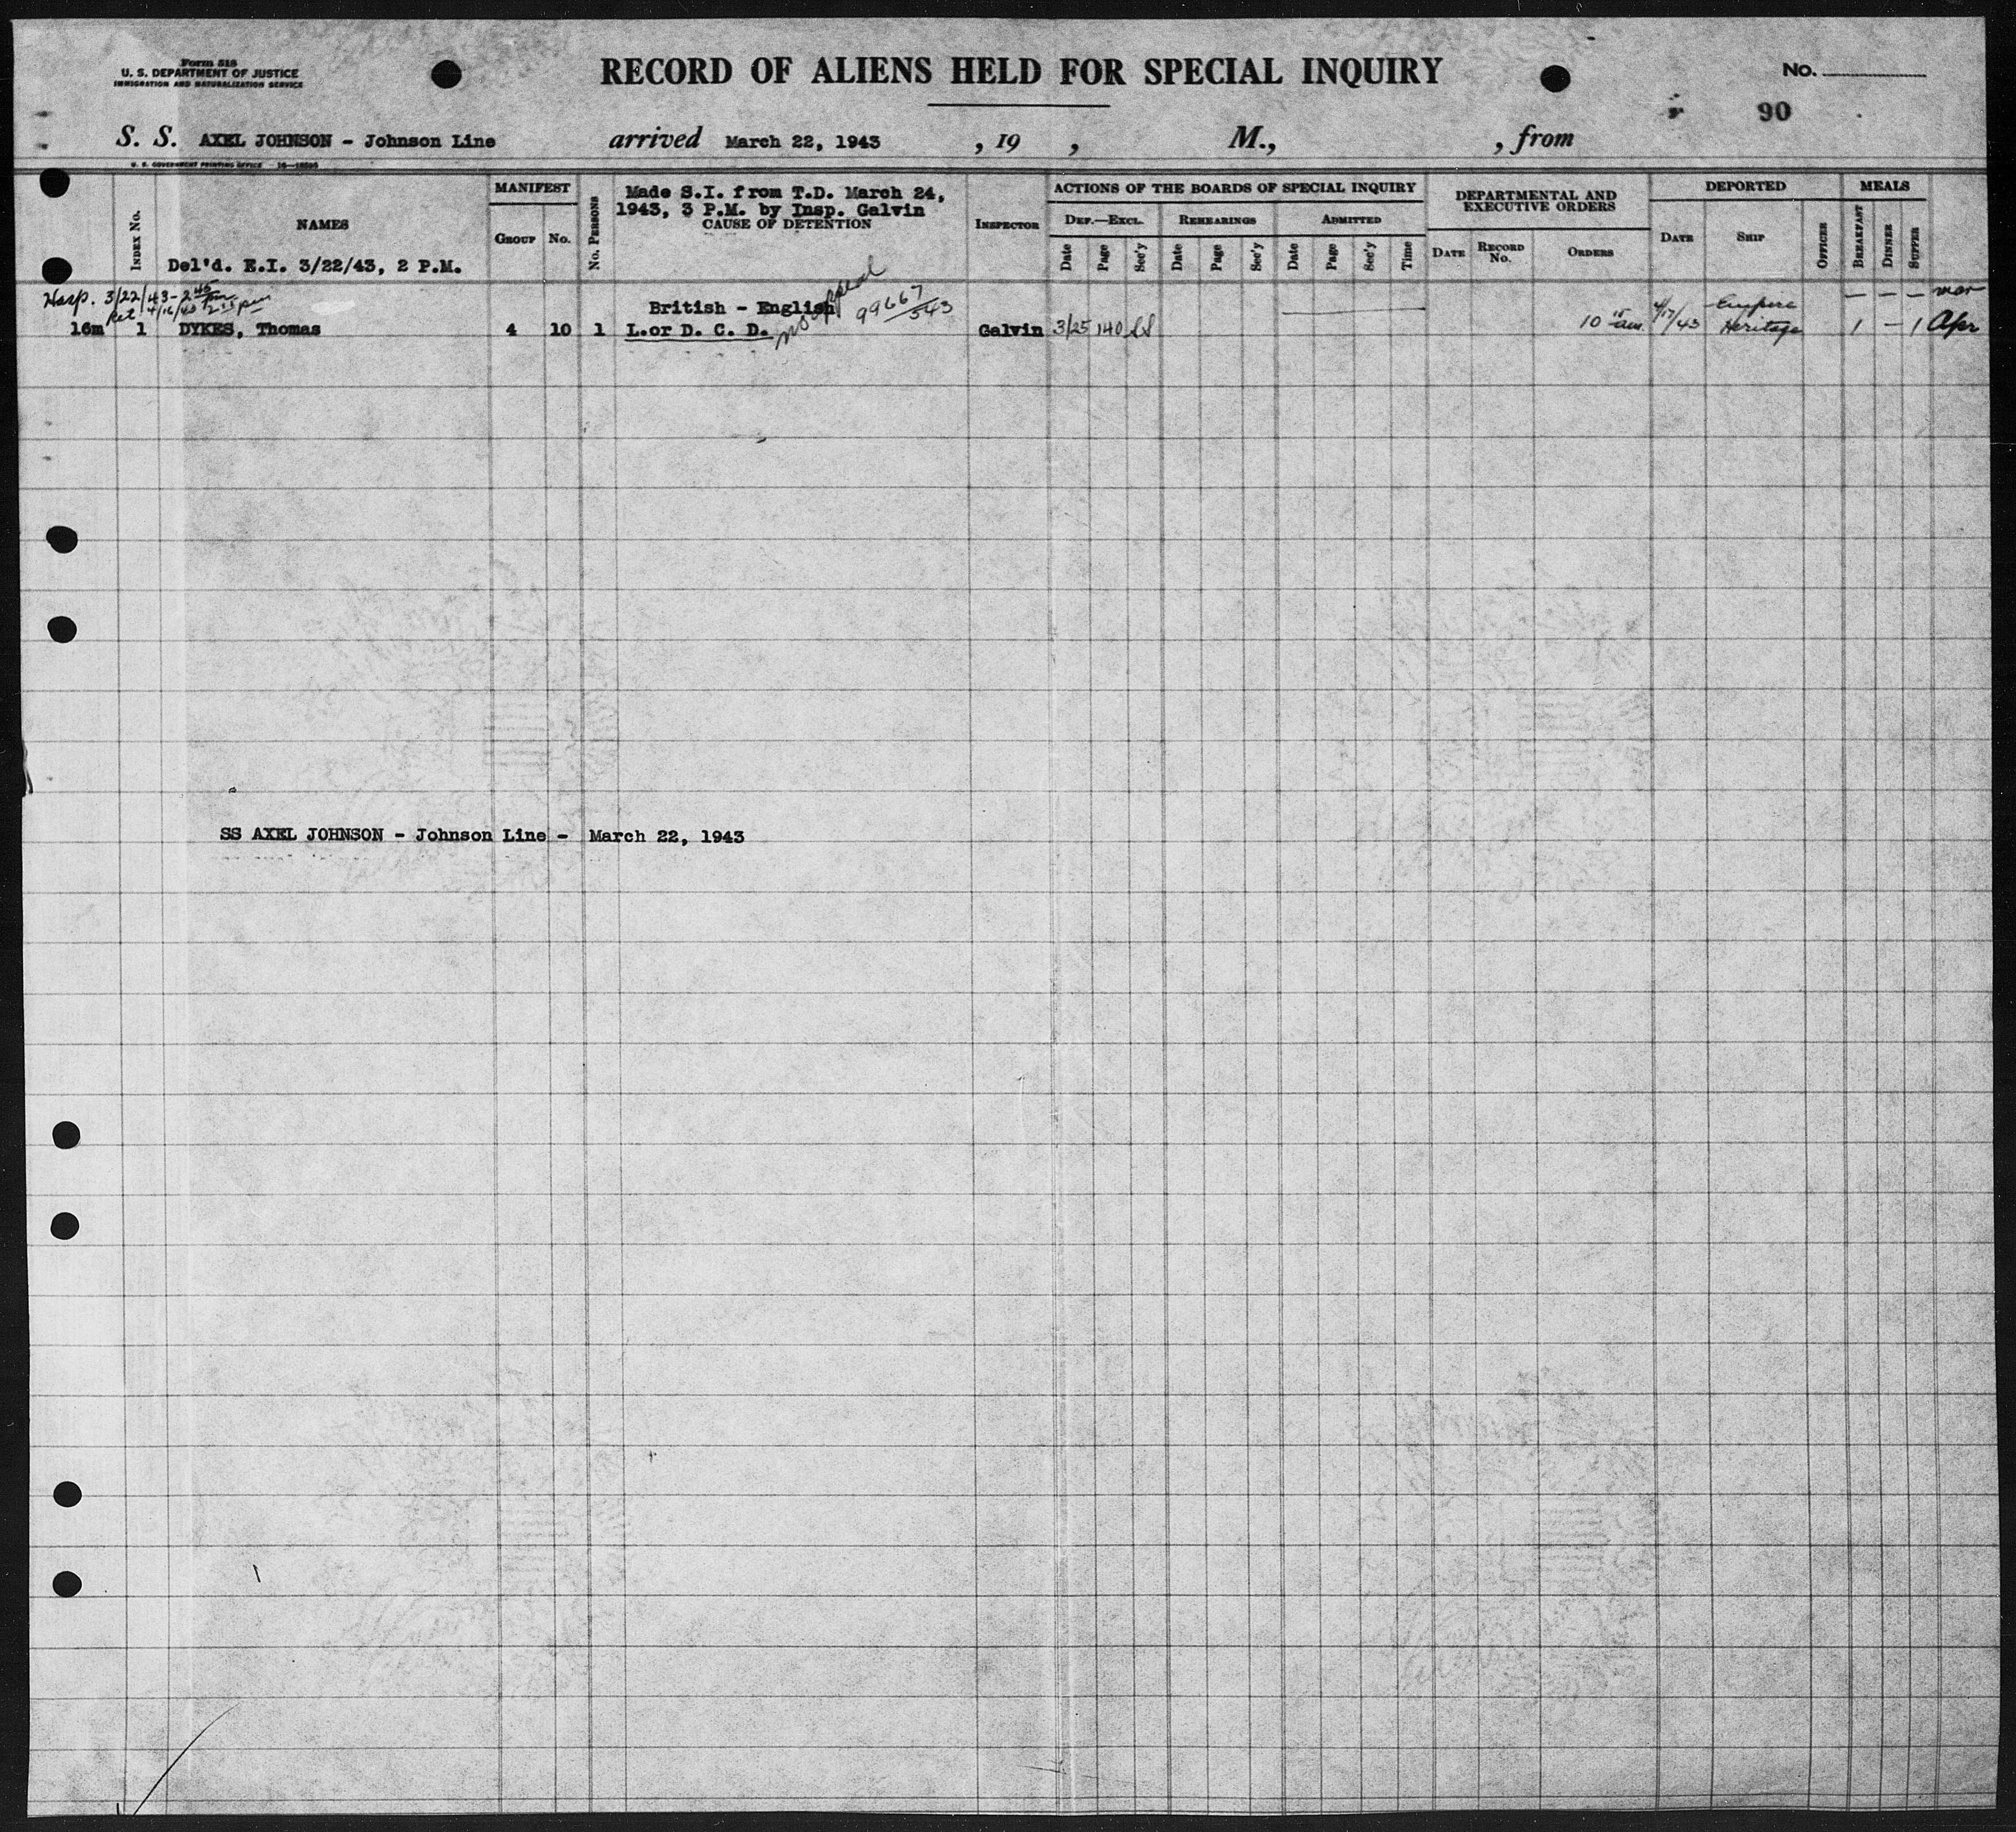 Form 518
U. S. DEPARTMENT OF JUSTICE
IMMIGRATION AND NATURALIZATION SERVICE
RECORD OF ALIENS HELD FOR SPECIAL INQUIRY
No.
90
S. S. AXEL JOHNSON - Johnson Line arrived March 22, 1943 , 19 , M., , from
U. S. GOVERNMENT PRINTING OFFICE
INDEX No.
NAMES
Del'd. E.I. 3/22/43, 2 P.M.
MANIFEST
GROUP No.
No. PERSONS
Made S.I. from T.D. March 24,
1943, 3 P.M. by Insp. Galvin
CAUSE OF DETENTION
INSPECTOR
ACTIONS OF THE BOARDS OF SPECIAL INQUIRY
DEF.—EXCL. REHEARINGS ADMITTED
Date Page Sec'y Date Page Sec'y Date Page Sec'y Time
DEPARTMENTAL AND
EXECUTIVE ORDERS
DATE RECORD No. ORDERS
DEPORTED
DATE SHIP OFFICER
MEALS
BREAKFAST DINNER SUPPER
Hosp. 3/22/43 - 2 45 pm
Ret 4/16/43 2 55 pm
British - English no appeal 99667/543 Empire — — — Mar
16m 1 DYKES, Thomas 4 10 1 L.or D. C. D. Galvin 3/25 140 SS 10 15 am. 4/17/43 Heritage 1 — 1 Apr
SS AXEL JOHNSON - Johnson Line - March 22, 1943